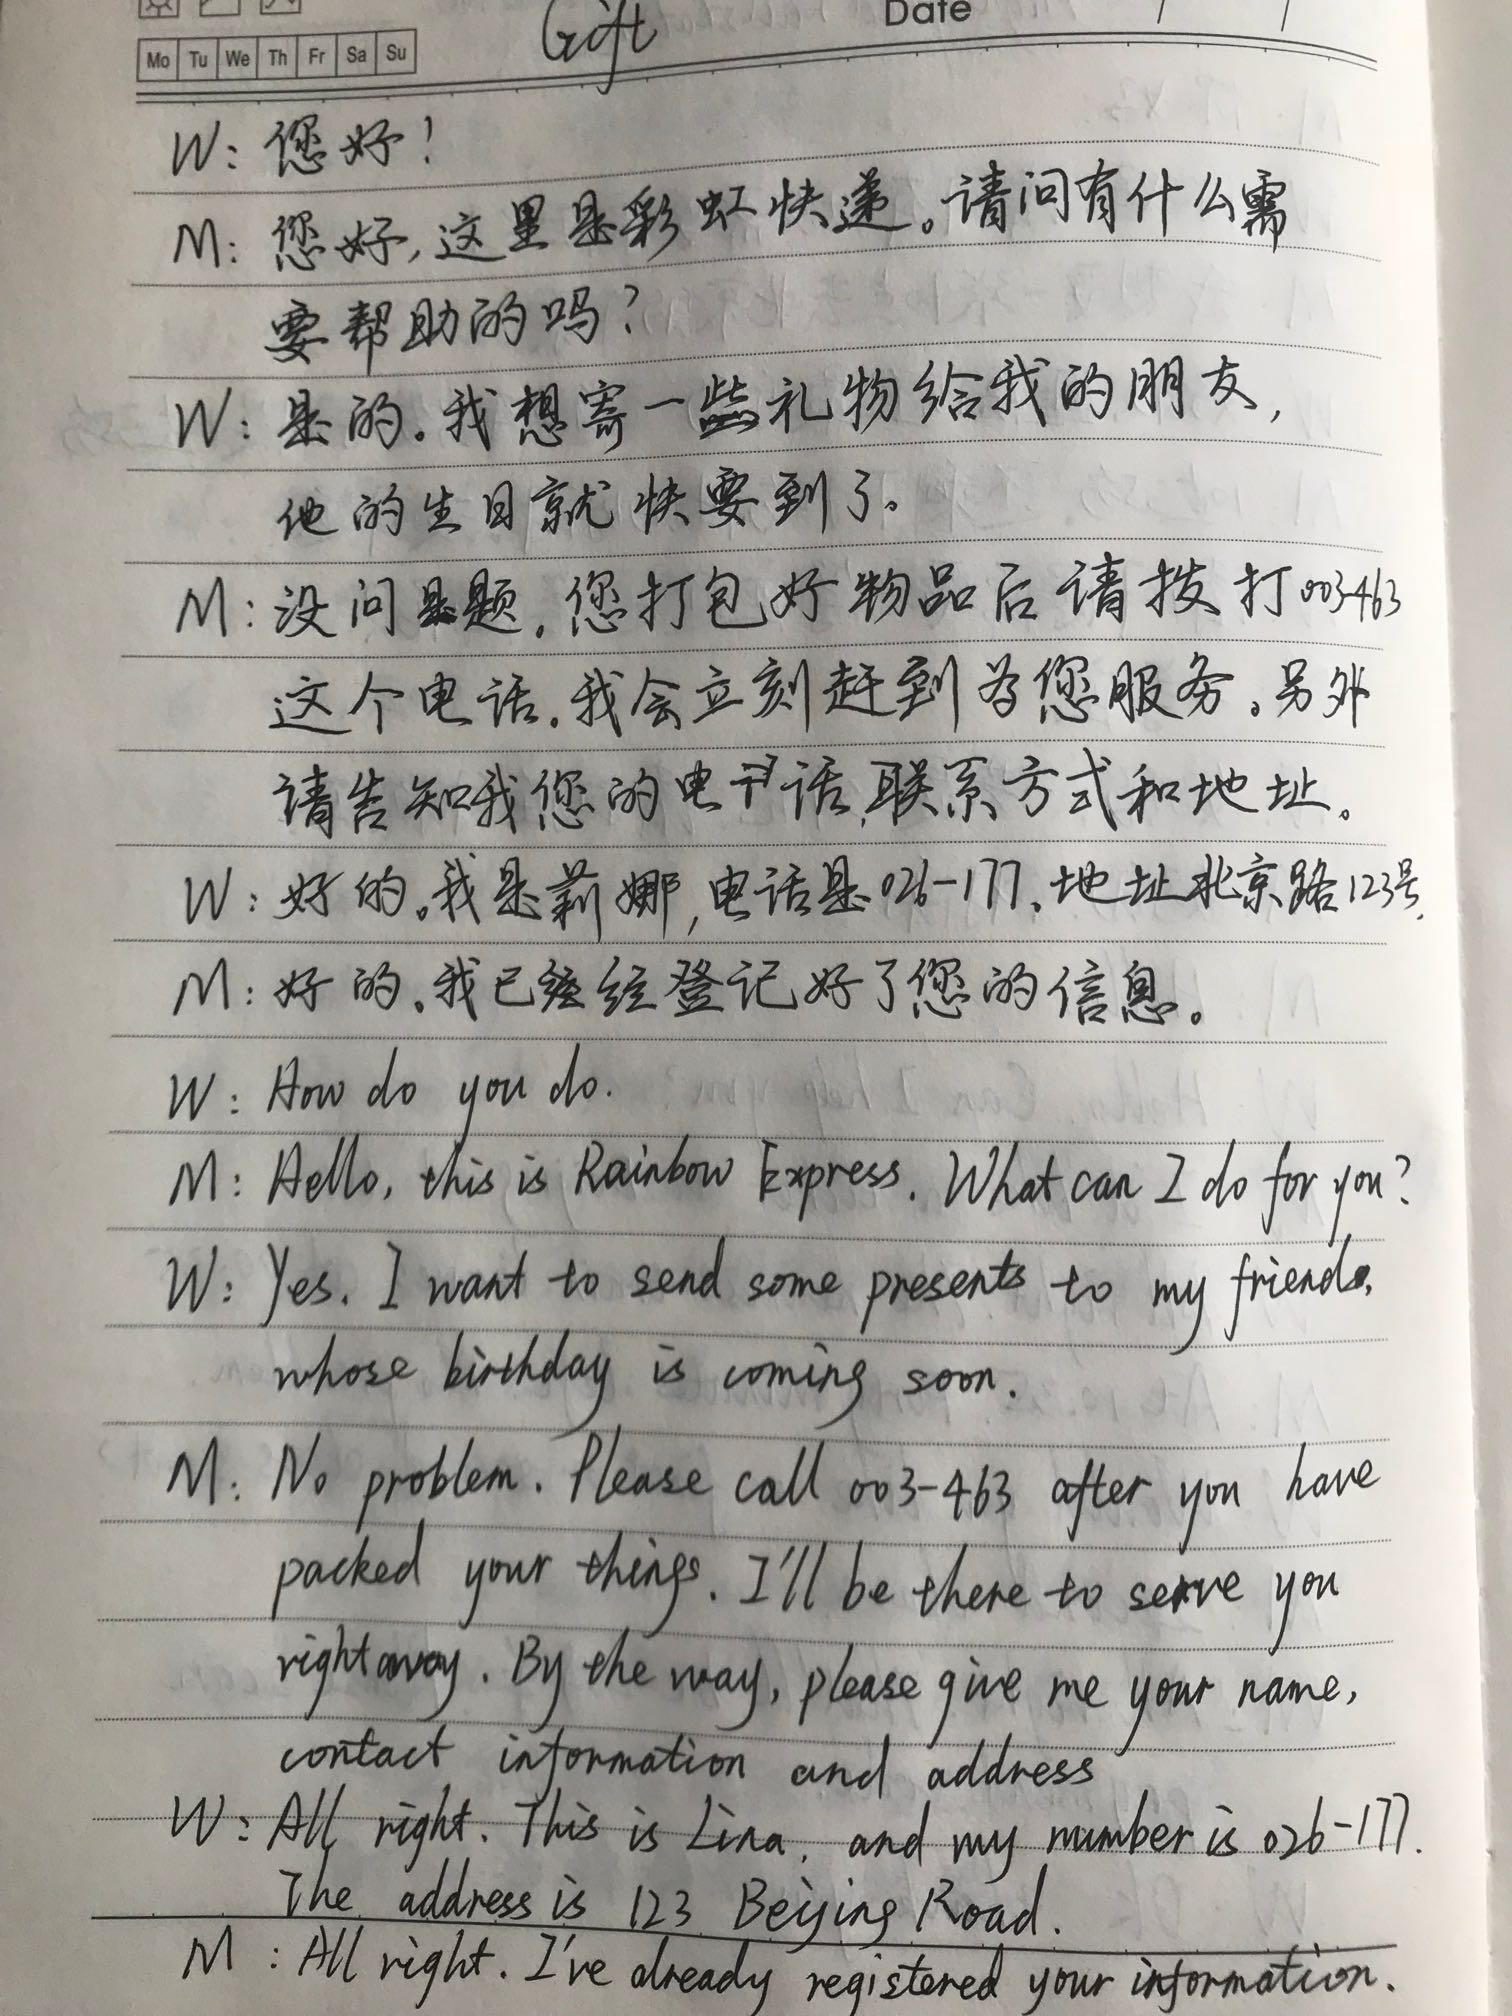 Gift
Date / /
Mo Tu We Th Fr Sa Su
W: 您好!
M: 您好,这里是彩虹快递。请问有什么需
要帮助的吗?
W: 是的。我想寄一些礼物给我的朋友,
他的生日就快要到了。
M: 没问题。您打包好物品后请拨打003-463
这个电话。我会立刻赶到为您服务。另外
请告知我您的电话,联系方式和地址。
W: 好的。我是莉娜,电话是026-177、地址北京路123号.
M: 好的。我已经登记好了您的信息。
W: How do you do.
M: Hello, this is Rainbow Express. What can I do for you?
W: Yes. I want to send some presents to my friend,
whose birthday is coming soon.
M: No problem. Please call 003-463 after you have
packed your things. I'll be there to serve you
right away. By the way, please give me your name,
contact information and address
W: All right. This is Lina, and my number is 026-177.
The address is 123 Beijing Road.
M: All right. I've already registered your information.